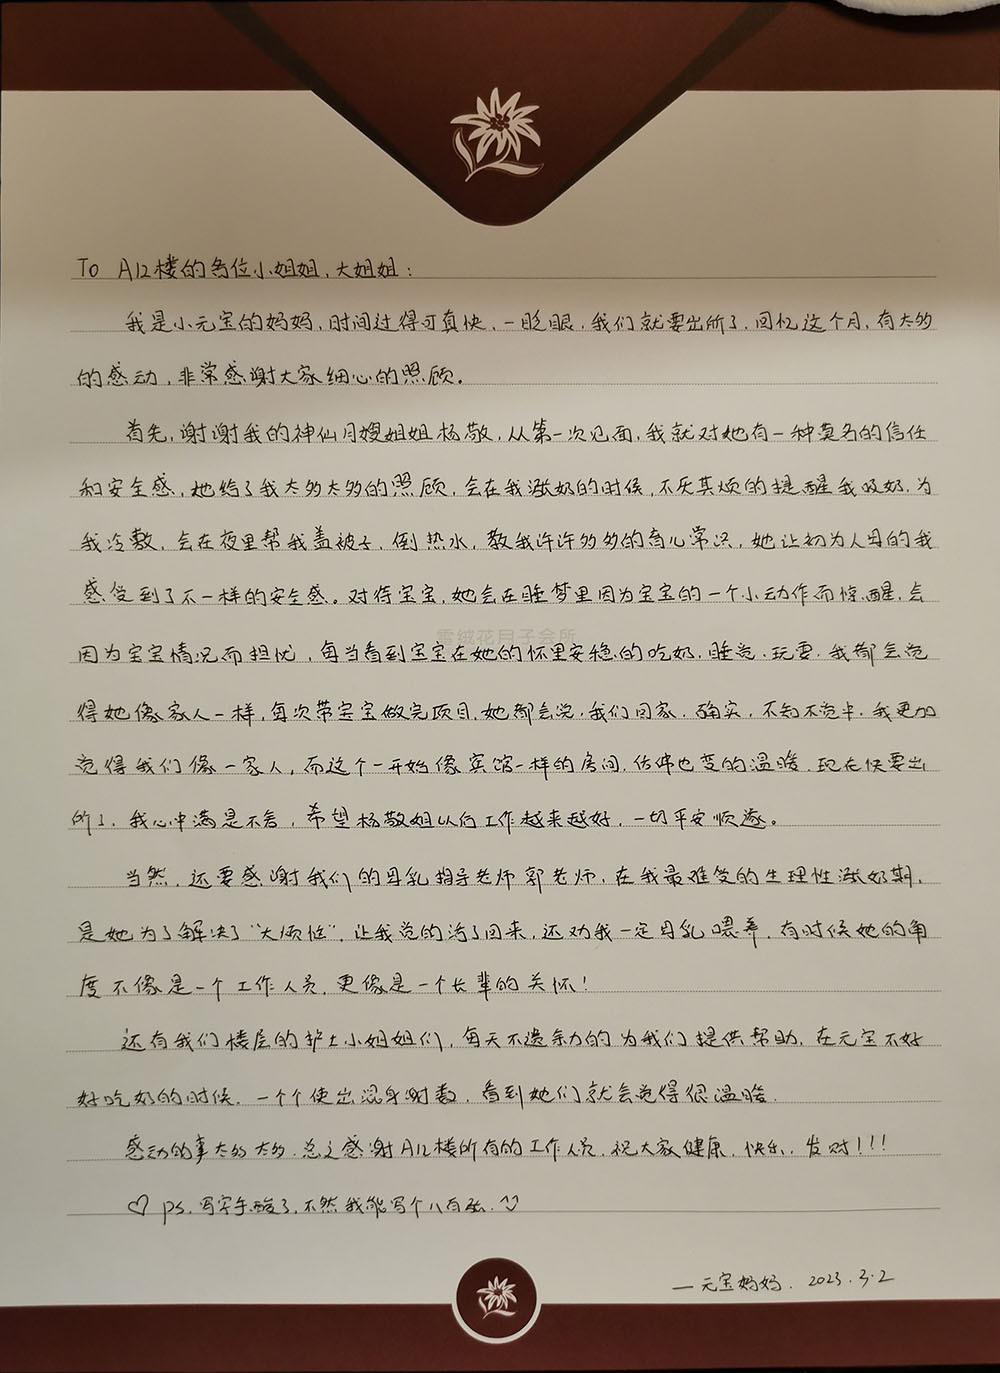 To A12楼的各位小姐姐,大姐姐:
我是小元宝的妈妈,时间过得可真快,一眨眼,我们就要出所了,回忆这个月,有太多
的感动,非常感谢大家细心的照顾。
首先,谢谢我的神仙月嫂姐姐杨敬,从第一次见面,我就对她有一种莫名的信任
和安全感,她给了我太多太多的照顾,会在我涨奶的时候,不厌其烦的提醒我吸奶,为
我冷敷,会在夜里帮我盖被子,倒热水,教我许许多多的育儿常识,她让初为人母的我
感受到了不一样的安全感。对待宝宝,她会在睡梦里因为宝宝的一个小动作而惊醒,会
雪绒花月子会所
因为宝宝情况而担忧,每当看到宝宝在她的怀里安稳的吃奶,睡觉,玩耍,我都会觉
得她像家人一样,每次带宝宝做完项目,她都会说,我们回家,确实,不知不觉中,我更加
觉得我们像一家人,而这个一开始像宾馆一样的房间,仿佛也变的温暖,现在快要出
所了,我心中满是不舍,希望杨敬姐以后工作越来越好,一切平安顺遂。
当然,还要感谢我们的母乳指导老师郭老师,在我最难受的生理性涨奶期,
是她为了解决了"大烦恼",让我觉的活了回来,还劝我一定母乳喂养,有时候她的角
度不像是一个工作人员,更像是一个长辈的关怀!
还有我们楼层的护士小姐姐们,每天不遗余力的为我们提供帮助,在元宝不好
好吃奶的时候,一个个使出浑身解数,看到她们就会觉得很温暖.
感动的事太多太多,总之感谢A12楼所有的工作人员,祝大家健康,快乐,发财!!!
♡ ps.写字手酸了,不然我能写个八百张.
—元宝妈妈. 2023.3.2